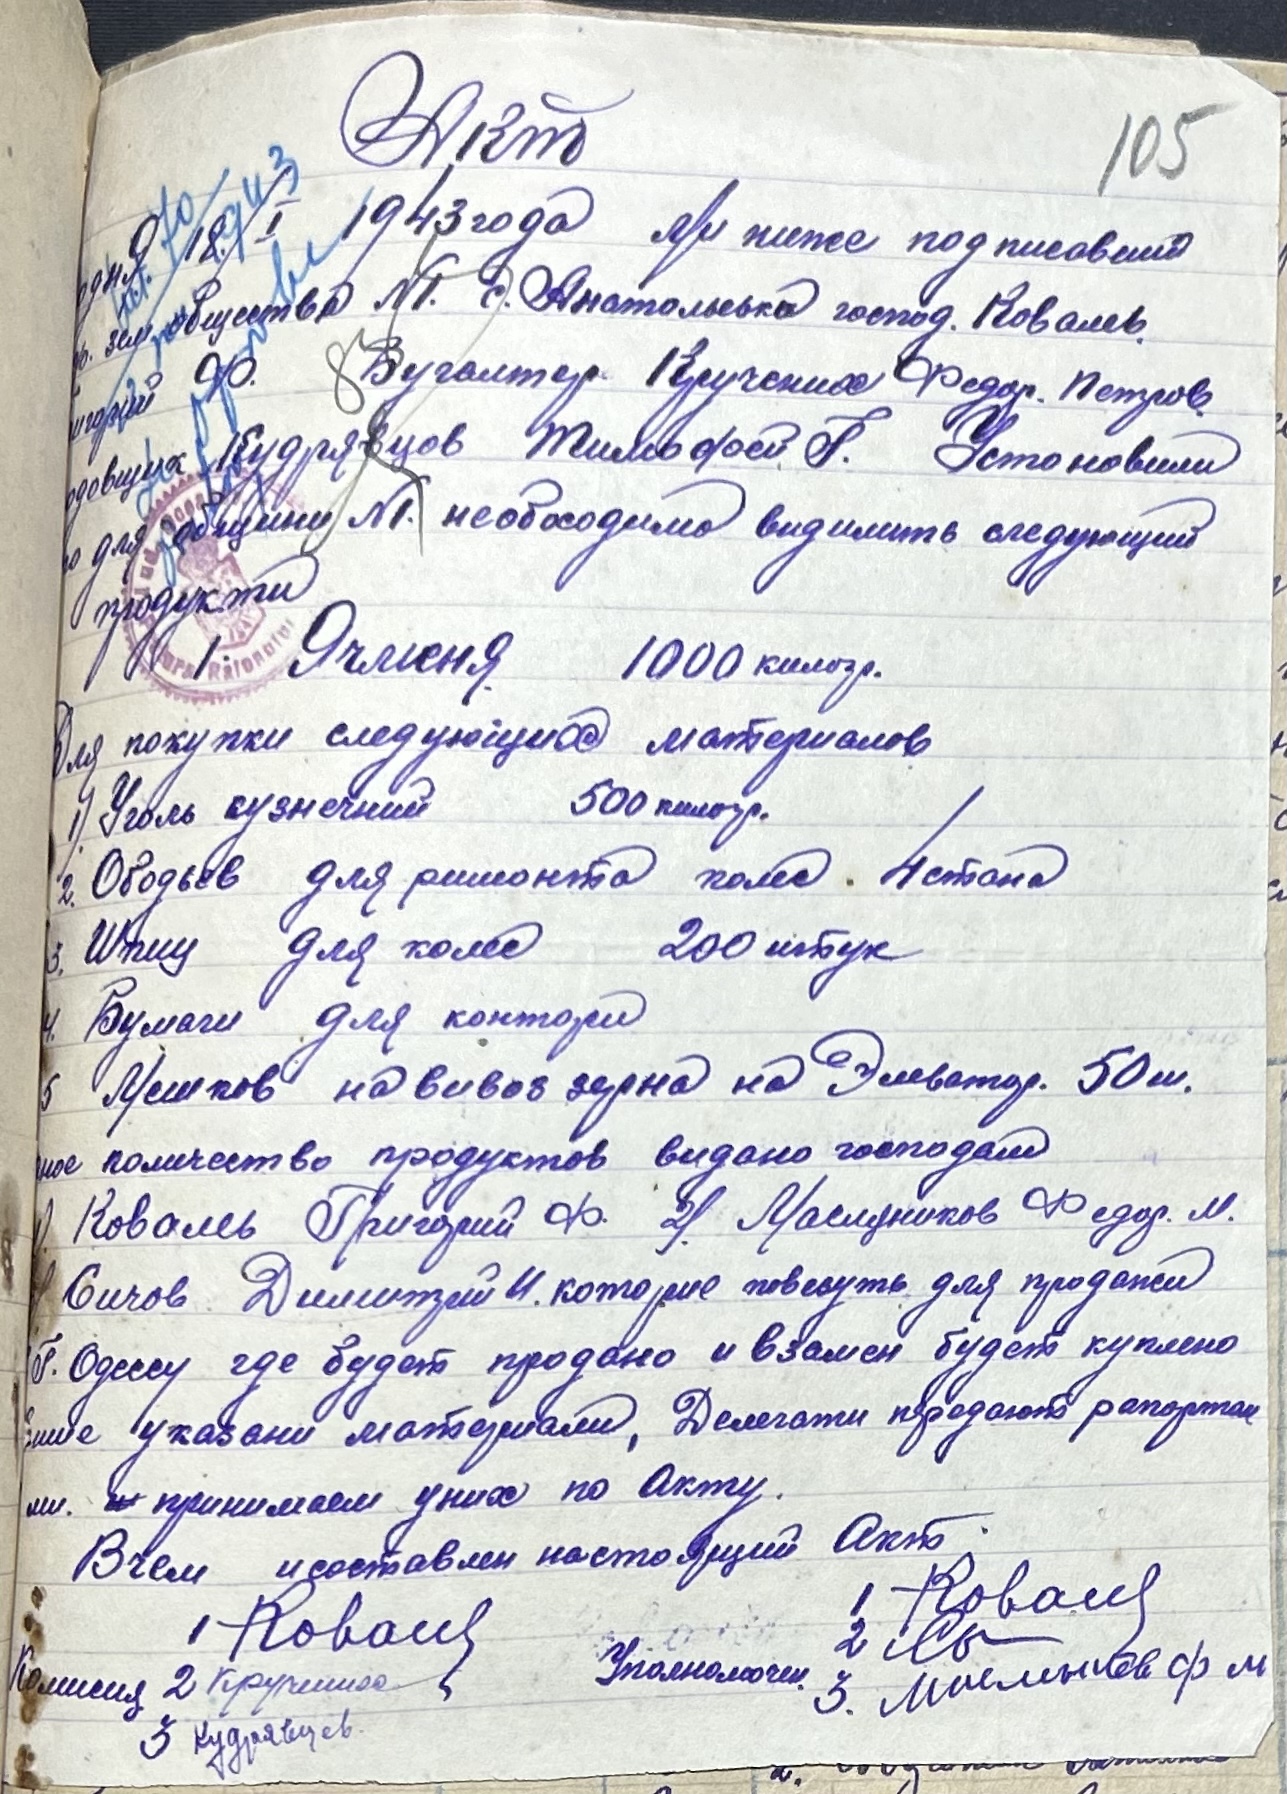 Акт
105
одня 18. I 1943 года Ми ниже подписавший
зем общества №1. с. Анатольевка господ. Коваль
игорий Ф. Бугалтер Кручених Федор. Петров
Кудрявцов Тимофей Г. Установили
о для общини №1. необходимо видилить следующий
продукти
1. Ячменя 1000 килогр.
Для покупки следующих материалов
1) Уголь кузнечний 500 килогр.
2. Ободьев для римонта колес 4 стана
3. Шпиц для колес 200 штук
4. Бумаги для контори
5 Мешков на вивоз зерна на Элеватор. 50 ш.
ное количество продуктов видано господам
Коваль Григорий Ф. 2) Маслуников Федор. М.
Сичов Димитрий И. которие повезуть для продажи
Г. Одессу где будет продано и взамен будет куплено
више указани материали, Делегати предают рапортам
ми. принимаем у них по Акту.
В чем и составлен настоящий Акт.
1 Коваль 1 Коваль
Комисия 2 Кручених Уполномочен. 2
3 Кудрявцев. 3. Ф М